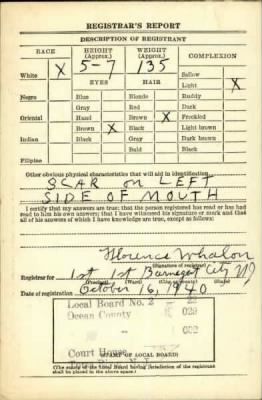 REGISTRAR'S REPORT
DESCRIPTION OF REGISTRANT
RACE HEIGHT (Approx.) WEIGHT (Approx.) COMPLEXION
White X 5-7 135 Sallow
EYES HAIR Light X
Negro Blue Blonde Ruddy
Gray Red Dark
Oriental Hazel Brown X Freckled
Brown X Black Light brown
Indian Black Gray Dark brown
Bald Black
Filipino
Other obvious physical characteristics that will aid in identification
SCAR ON LEFT
SIDE OF MOUTH
I certify that my answers are true; that the person registered has read or has had
read to him his own answers; that I have witnessed his signature or mark and that all
of his answers of which I have knowledge are true, except as follows:
Florence Whalon
(Signature of registrar)
Registrar for 1st 1st Barnegat City NJ
(Precinct) (Ward) (City or county) (State)
Date of registration October 16, 1940
Local Board No. 2 22
Ocean County 029
002
Court House
(STAMP OF LOCAL BOARD)
(The stamp of the Local Board having jurisdiction of the registrant
shall be placed in the above space.)